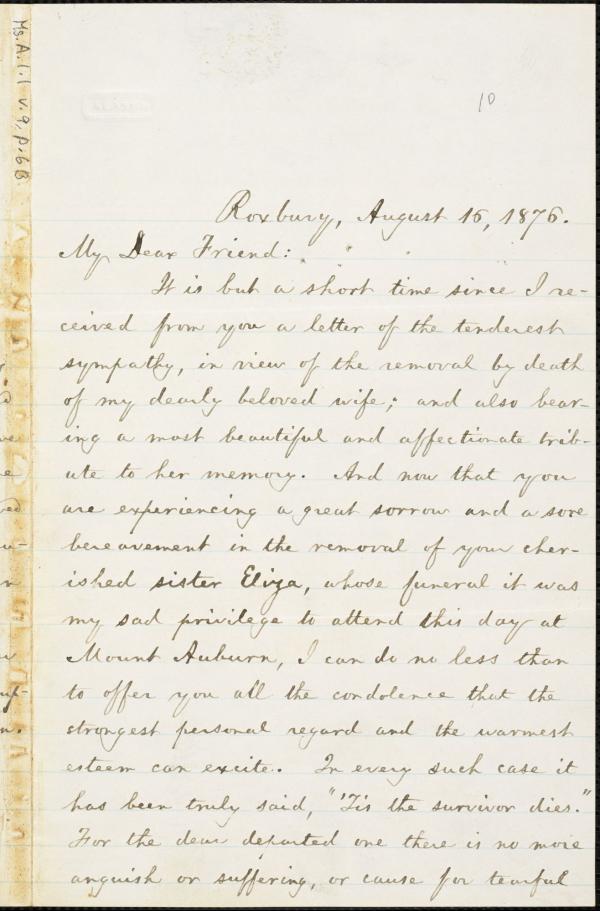 Ms. A. 1. 1 v. 9, p. 6B
10
Roxbury, August 16, 1876.
My Dear Friend:
It is but a short time since I re-
ceived from you a letter of the tenderest
sympathy, in view of the removal by death
of my dearly beloved wife; and also bear-
ing a most beautiful and affectionate trib-
ute to her memory. And now that you
are experiencing a great sorrow and a sore
bereavement in the removal of your cher-
ished sister Eliza, whose funeral it was
my sad privilege to attend this day at
Mount Auburn, I can do no less than
to offer you all the condolence that the
strongest personal regard and the warmest
esteem can excite. In every such case it
has been truly said, "'Tis the survivor dies."
For the dear departed one there is no more
anguish or suffering, or cause for tearful